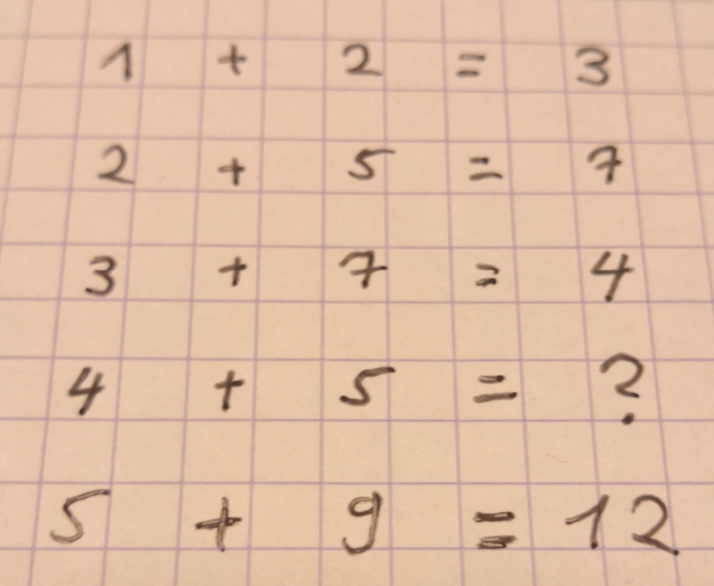 1 + 2 = 3
2 + 5 = 7
3 + 7 = 4
4 + 5 = ?
5 + 9 = 12